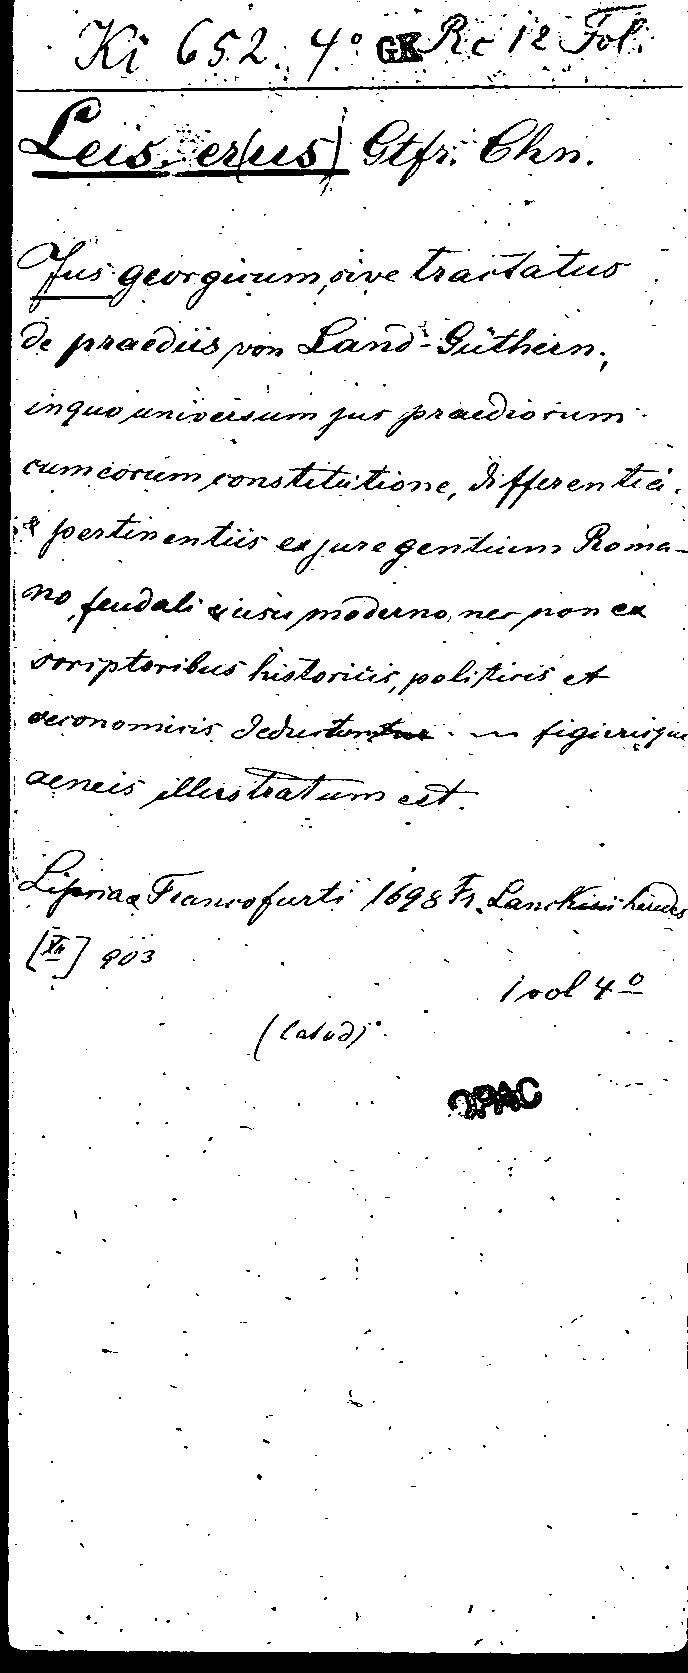 Ki 652. 4° GK Rc 12 Fol.
Leis er(us) Gtfr. Chn.
Jus georgicum, sive tractatus
de praediis von Land-Güthern,
in quo universum jus praediorum
cum eorum constitutione, differentia
& pertinentiis ex jure gentium Roma-
no, feudali & usu moderno, nec non ex
scriptoribus historicis, politicis et
oeconomicis figurisque
aeneis illustratum est.
Lipsiae Francofurti 1698 Fr.
903
1 vol 4°
OPAC